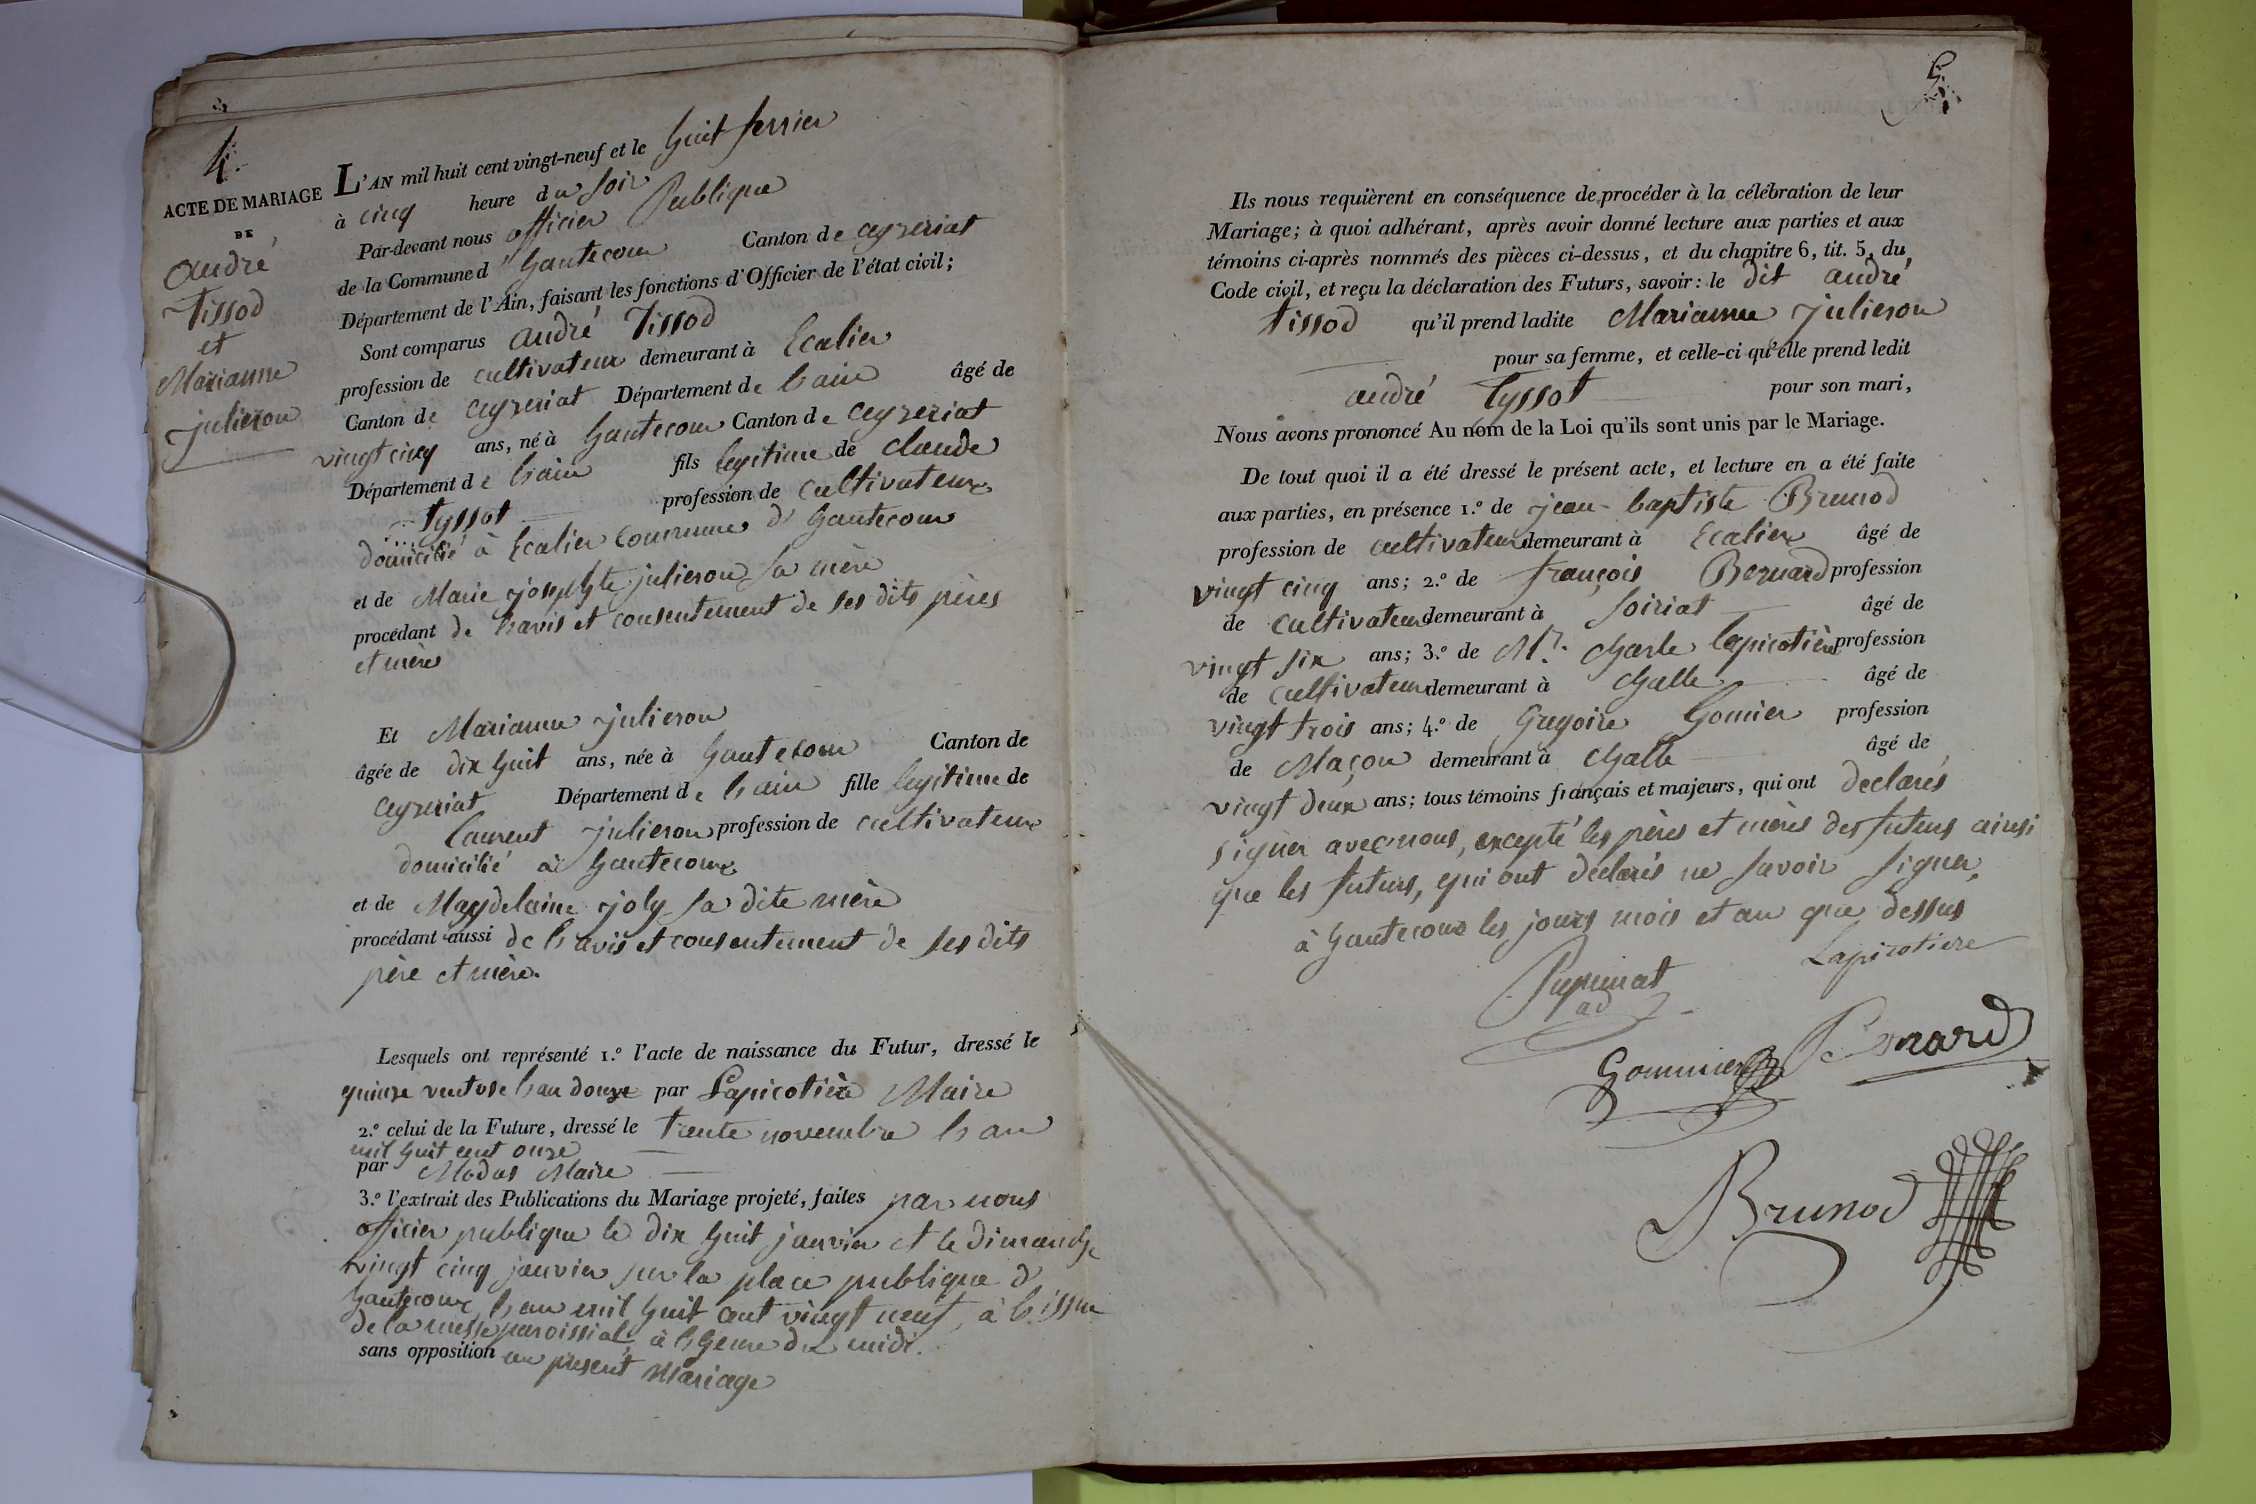 4.
ACTE DE MARIAGE
DE
andré
Tissod
et
Marianne
julieron
L'AN mil huit cent vingt-neuf et le huit fevrier
à cinq heure du soir
Par-devant nous officier Publique
de la Commune d' hautecour Canton de ceyzeriat
Département de l'Ain, faisant les fonctions d'Officier de l'état civil;
Sont comparus andré Tissod
profession de cultivateur demeurant à Ecalier
Canton de ceyzeriat Département de l'ain âgé de
vingt cinq ans, né à hautecour Canton de ceyzeriat
Département de l'ain fils legitime de claude
Tyssot profession de cultivateur
domicilié à Ecalier commune d' hautecour
et de Marie josephte julieron sa mère
procédant de l'avis et consentement de ses dits pères
et mère
Et Marianne julieron
âgée de dix huit ans, née à hautecour Canton de
ceyzeriat Département de l'ain fille legitime de
laurent julieron profession de cultivateur
domicilié à hautecour
et de Magdelaine joly sa dite mère
procédant aussi de l'avis et consentement de ses dits
père et mère.
Lesquels ont représenté 1.º l'acte de naissance du Futur, dressé le
quinze ventose l'an douze par Lapicotière Maire
2.º celui de la Future, dressé le trente novembre l'an
mil huit cent onze
par Modas Maire
3.º l'extrait des Publications du Mariage projeté, faites par nous
officier publique le dix huit janvier et le dimanche
vingt cinq janvier sur la place publique d'
hautecour l'an mil huit cent vingt neuf, à l'issue
de la messe paroissiale, à l'heure de midi.
sans opposition au present Mariage
5.
Ils nous requièrent en conséquence de procéder à la célébration de leur
Mariage; à quoi adhérant, après avoir donné lecture aux parties et aux
témoins ci-après nommés des pièces ci-dessus, et du chapitre 6, tit. 5, du
Code civil, et reçu la déclaration des Futurs, savoir: le dit andré
Tissod qu'il prend ladite Marianne julieron
pour sa femme, et celle-ci qu'elle prend ledit
andré Tyssot pour son mari,
Nous avons prononcé Au nom de la Loi qu'ils sont unis par le Mariage.
De tout quoi il a été dressé le présent acte, et lecture en a été faite
aux parties, en présence 1.º de jean-baptiste Brunod
profession de cultivateur demeurant à Ecalier âgé de
vingt cinq ans; 2.º de françois Bernard profession
de cultivateur demeurant à Soiriat âgé de
vingt six ans; 3.º de Mr. charle lapicotière profession
de cultivateur demeurant à challe âgé de
vingt trois ans; 4.º de Gregoire Gomier profession
de Maçon demeurant à challe âgé de
vingt deux ans; tous témoins français et majeurs, qui ont declarés
signer avec nous, excepté les pères et mères des futurs ainsi
que les futurs, qui ont declarés ne savoir signer,
à hautecour les jours mois et an que dessus
Lapicotiere
ad
Gommier
Bernard
Brunod